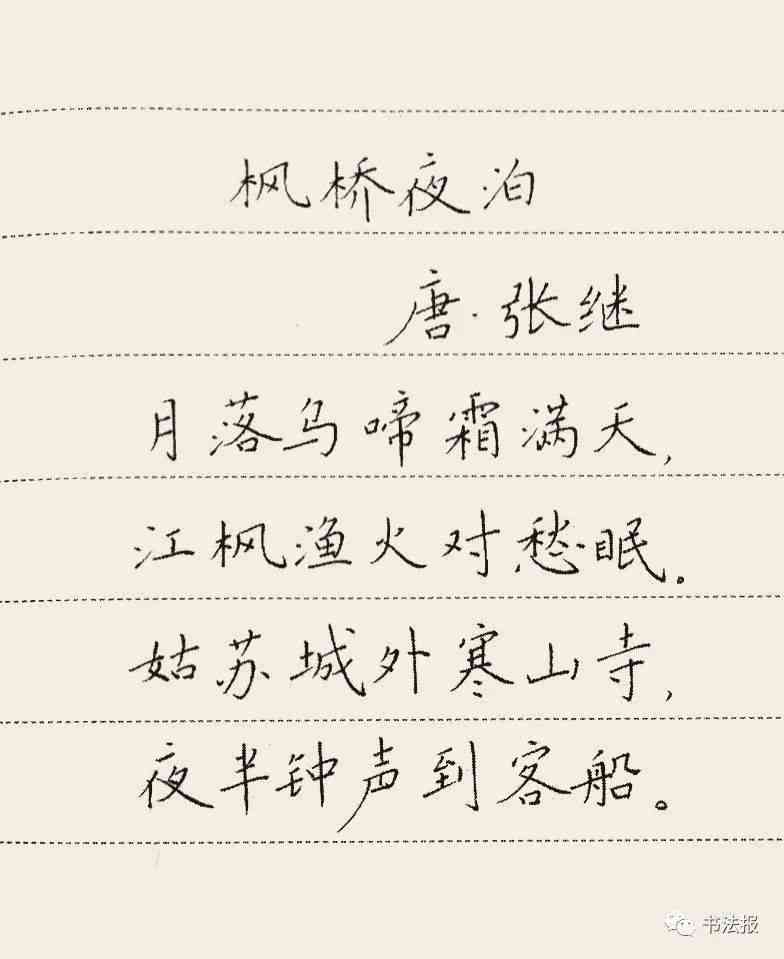 枫桥夜泊
唐·张继
月落乌啼霜满天，
江枫渔火对愁眠。
姑苏城外寒山寺，
夜半钟声到客船。
书法报